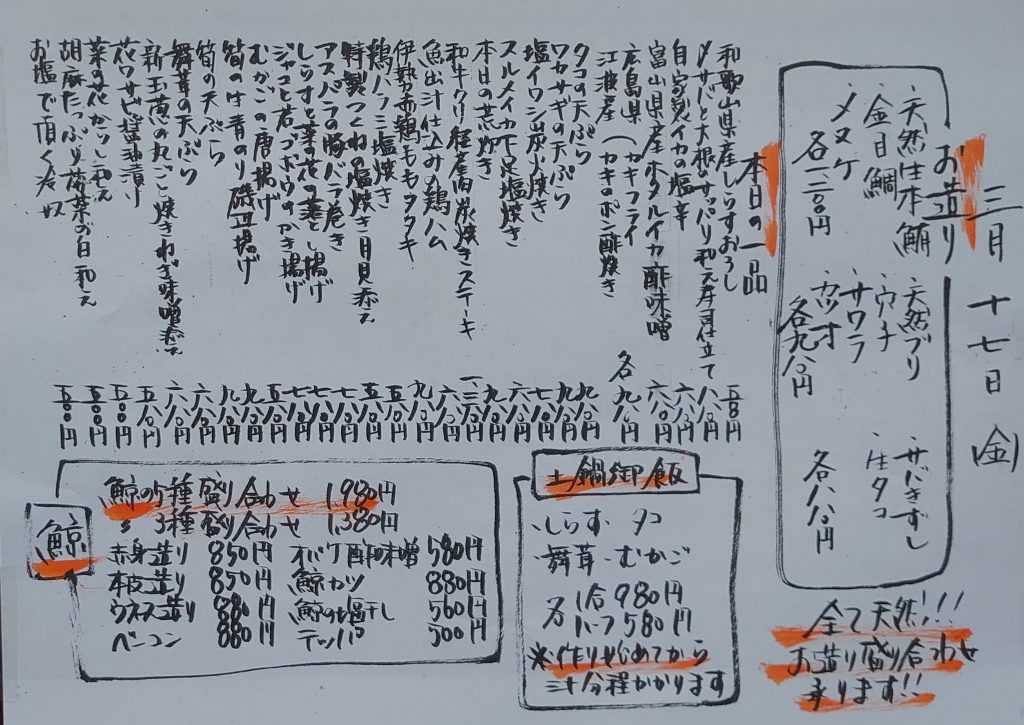 三月十七日(金)
お造り
・天然生本鮪
・金目鯛
・メヌケ
各一二〇〇円
・天然ブリ
・ウチ
・サワラ
・カツオ
各九八〇円
・サバきずし
・生タコ
各八八〇円
全て天然!!!
お造り盛り合わせ
承ります!!
本日の一品
和歌山県産しらすおろし 五八〇円
〆サバと大根のサッパリ和え寿司仕立て 八八〇円
自家製イカの塩辛 六八〇円
富山県産ホタルイカ酢味噌 六八〇円
広島県江波産(カキフライ カキのポン酢焼き 各九八〇円
タコの天ぷら 九八〇円
ワカサギの天ぷら 九八〇円
塩イワシ炭火焼き
スルメイカ下足塩焼き
本日の荒炊き
和牛クリ経産肉炭焼きステーキ
魚出汁仕込み鶏ハム
伊勢赤鶏ももタタキ
鶏ハラミ塩焼き
特製つくねの塩焼き月見添え
アスパラの豚バラ巻き
しらすと菜の花の落とし揚げ
ジャコと若ゴボウのかき揚げ
むかごの唐揚げ
筍のは青のり磯辺揚げ
筍の天ぷら
舞茸の天ぷら
新玉葱の丸ごと焼きねぎ味噌添え
花ワサビ醤油漬け
菜の花からし和え
胡麻たっぷり菠菜お白和え
お塩で頂く冷奴 五〇〇円
土鍋御飯
・しらす・タコ
・舞茸・むかご
各 1合 980円
ハーフ 580円
※作りはじめてから
三十分程かかります
鯨
鯨の5種盛り合わせ 1,980円
〃 3種盛り合わせ 1,380円
赤身造り 850円 オバケ酢味噌 580円
本皮造り 850円 鯨カツ 880円
ウネス造り 880円 鯨の塩干し 560円
ベーコン 880円 テッパ 500円